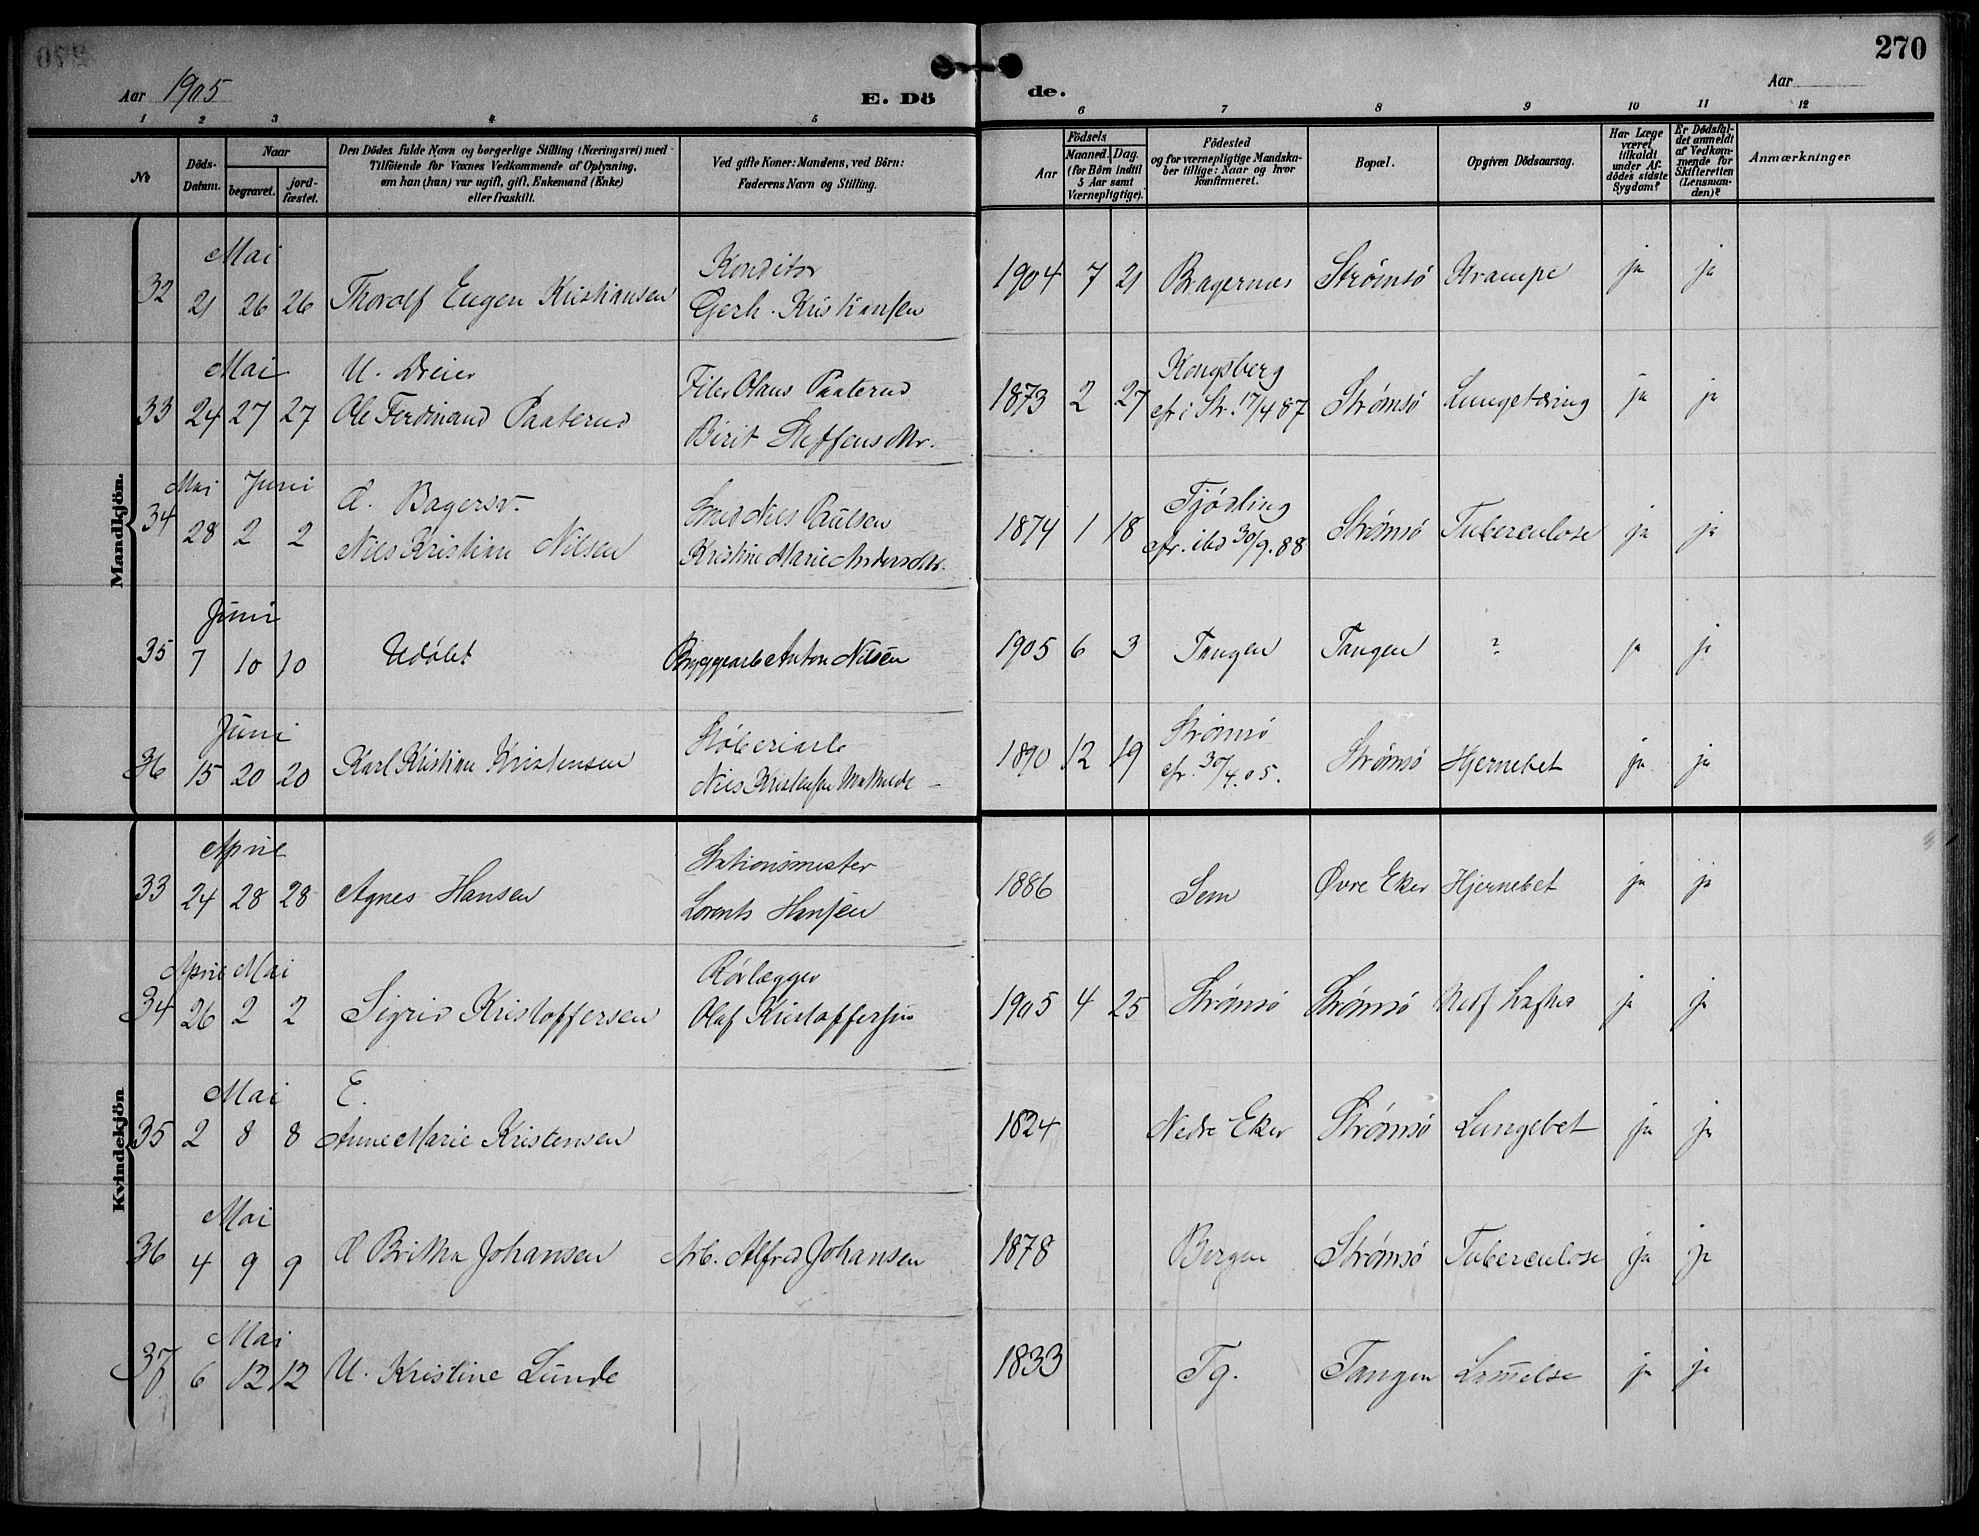 270
Aar 1905
E. Dö
de.
Aar
1 2 3 4 5 6 7 8 9 10 11 12
№
Döds-Datum.
Naar
begravet.
jord-fæstet.
Den Dödes fulde Navn og borgerlige Stilling (Næringsvei) med
Tilföiende for Voxnes Vedkommende af Oplysning,
om han (hun) var ugift, gift, Enkemand (Enke)
eller fraskilt.
Ved gifte Koner: Mandens, ved Börn:
Faderens Navn og Stilling.
Födsels
Aar
Maaned. Dag.
(for Börn indtil
5 Aar samt
Værnepligtige).
Födested
og for værnepligtige Mandska-
ber tillige: Naar og hvor
konfirmeret.
Bopæl.
Opgiven Dödsaarsag.
Har Læge
været
tilkaldt
under Af-
dödes sidste
Sygdom?
Er Dödsfal-
det anmeldt
af Vedkom-
mende for
Skifteretten
(Lensman-
den)?
Anmærkninger
Mandkjön.
Mai Konditor
32 21 26 26 Thorolf Eugen Kristiansen Gerh. Kristiansen 1904 7 21 Bragernes Strømsø Krampe ja ja
Mai U. Dreier Filer Olaus Paaterud Kongsberg
33 24 27 27 Ole Ferdinand Paaterud Birit Steffensdtr. 1873 2 27 cfr i Str. 17/4 87 Strømsø Lungetæring ja ja
Mai Juni Bagersv. Smed Nils Paulsen Fjødling
34 28 2 2 Nils Kristian Nilsen Kristine Marie Andersdtr. 1874 1 18 cfr. ibd 30/9.88 Strømsø Tuberculose ja ja
Juni
35 7 10 10 Udøbt Bryggearb Anton Nilsen 1905 6 3 Tangen Tangen ? ja ja
Juni Støberiarb Strømsø
36 15 20 20 Karl Kristian Kristensen Nils 1890 12 19 cfr. 30/4.05. Strømsø Hjernebet ja ja
Kvindekjön
April Stationsmester
33 24 28 28 Agnes Hansen Lorents Hansen 1886 Sem Øvre Eker Hjernebet ja ja
April Mai Rørlægger
34 26 2 2 Sigrid Kristoffersen Olaf Kristoffersen 1905 4 25 Strømsø Strømsø ja ja
Mai E.
35 2 8 8 Anne Marie Kristensen 1824 Nedre Eker Strømsø Lungebet ja ja
Mai
36 4 9 9 Johansen Arb. Alfred Johansen 1878 Bergen Strømsø Tuberculose ja ja
Mai
37 6 12 12 U. Kristine Lunde 1833 Tg. Tangen ja ja